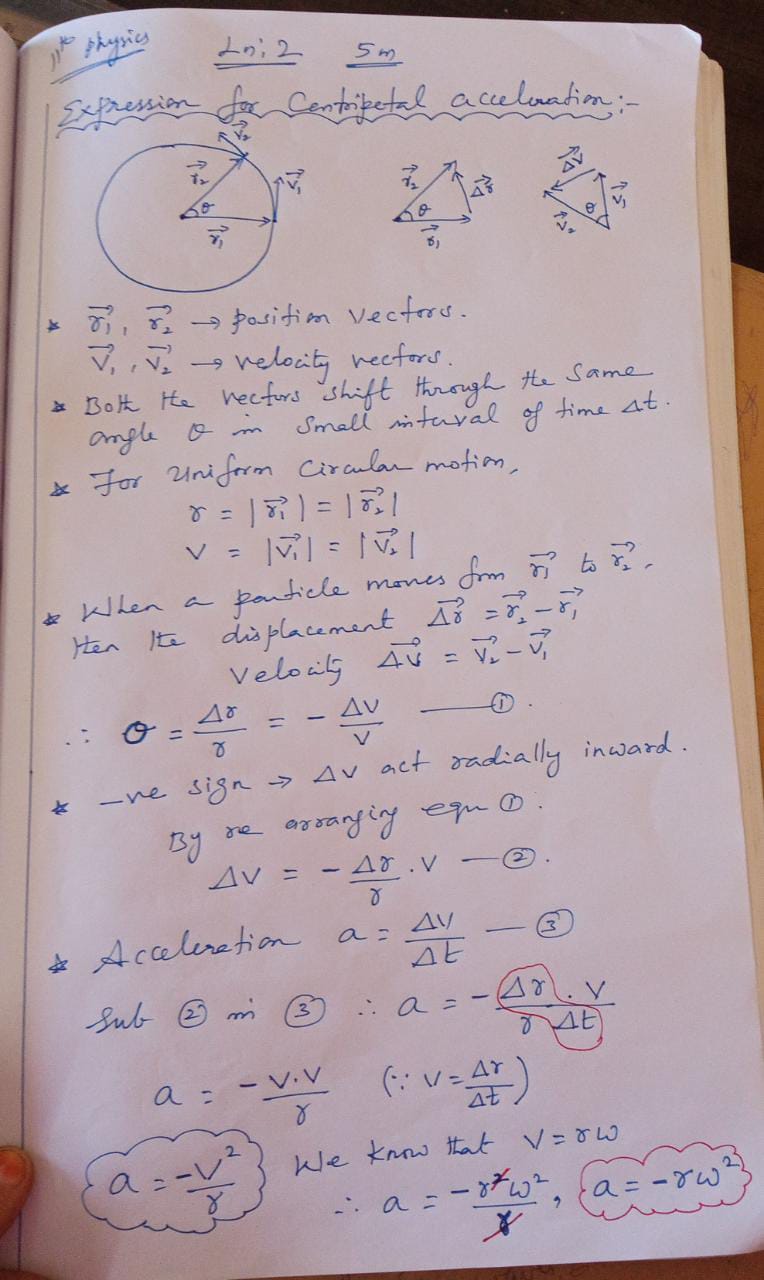 11th physics Ln: 2 5m
Expression for Centripetal acceleration:-
v⃗₂
r⃗₂ θ r⃗₁ v⃗₁
r⃗₂ θ r⃗₁ Δr⃗
Δv⃗ v⃗₂ θ v⃗₁
* r⃗₁, r⃗₂ → position vectors.
V⃗₁, V⃗₂ → velocity vectors.
* Both the vectors shift through the same
angle θ in small interval of time Δt.
* For Uniform Circular motion,
r = |r⃗₁| = |r⃗₂|
V = |V⃗₁| = |V⃗₂|
* When a particle moves from r⃗₁ to r⃗₂,
then the displacement Δr⃗ = r⃗₂ - r⃗₁
Velocity Δv⃗ = V⃗₂ - V⃗₁
∴ θ = Δr/r = - ΔV/V — ①.
* -ve sign → ΔV act radially inward.
By re arranging equn ①.
ΔV = - Δr/r . V — ②.
* Acceleration a = ΔV/Δt — ③
Sub ② in ③ ∴ a = - Δr . V / r Δt
a = - V.V/r (∵ V = Δr/Δt)
a = -V²/r We know that V = rω
∴ a = -r²ω²/r, a = -rω²